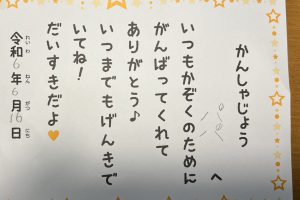 かんしゃじょう
へ
いつもかぞくのために
がんばってくれて
ありがとう♪
いつまでもげんきで
いてね!
だいすきだよ🧡
令和6年6月16日
れいわ ねん がつ にち